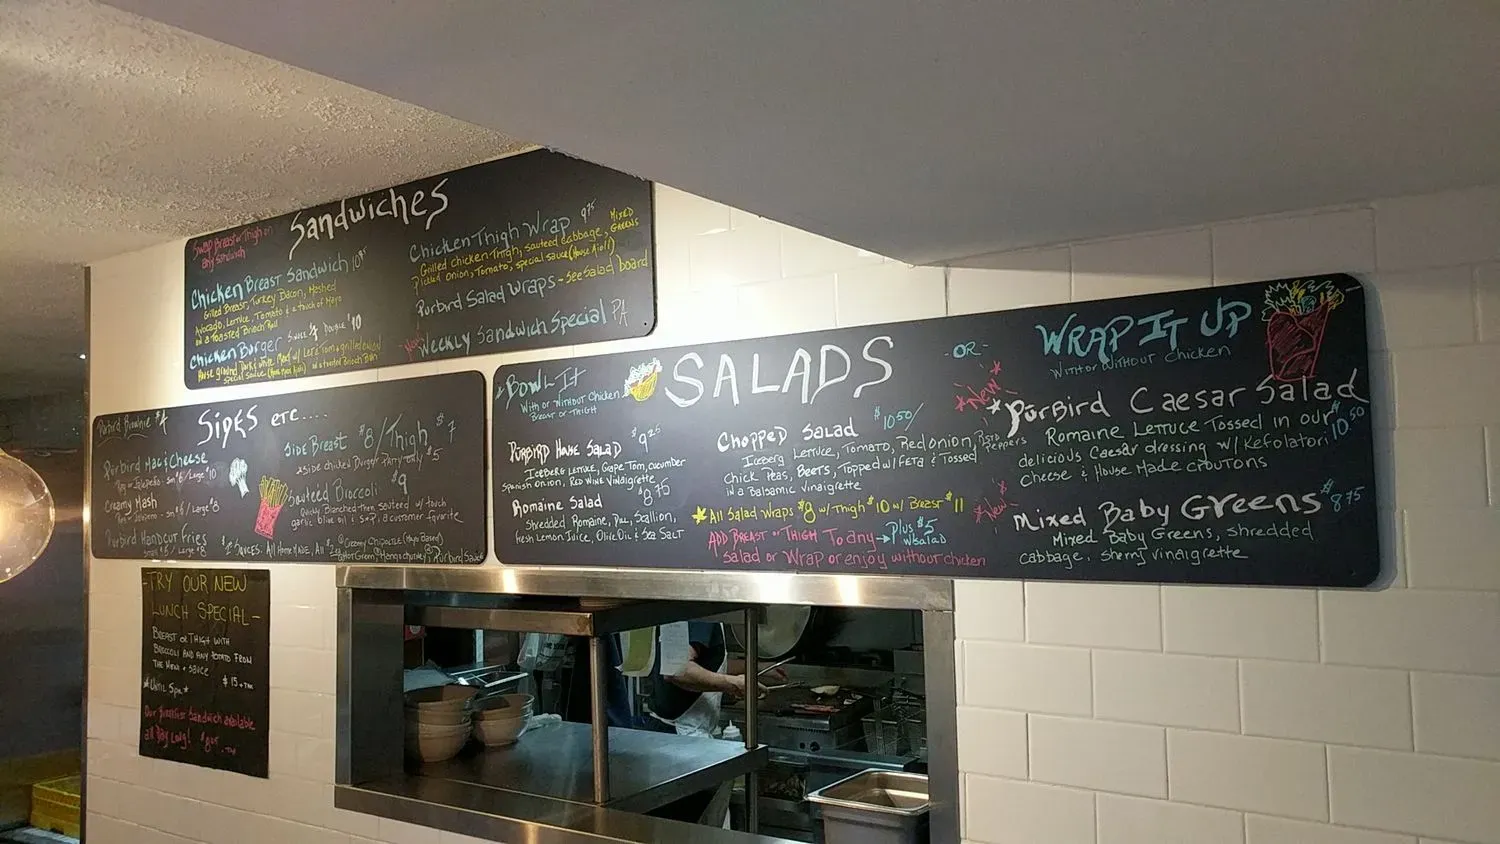 Sandwiches
Swap Breast or Thigh on
any sandwich
Chicken Breast Sandwich 10.95
Grilled Breast, Turkey Bacon, Mashed
Avocado, Lettuce, Tomato & a touch of Mayo
in a Toasted Brioch Roll
Chicken Burger Double $10
Chicken Thigh Wrap 9.75
Grilled Chicken Thigh, sauteed cabbage, Mixed Greens
Pickled Onion, Tomato, special sauce (House Aioli)
Purbird Salad Wraps - See Salad board
Weekly Sandwich Special PA
Purbird Brownie $4
Sides etc....
Purbird Mac & Cheese
Large $10
Creamy Mash
Large $8
Purbird Handcut Fries
Small $6 / Large $8
Side Breast $8 / Thigh $7
Sauteed Broccoli $9
Quickly Blanched then sauteed w/ touch
garlic, olive oil & S&P, a customer favorite
Sauces: All Home Made, All
Bowl It
With or Without Chicken
Breast or Thigh
SALADS
- OR -
WRAP IT UP
With or Without Chicken
Purbird House Salad $9.25
Iceberg Lettuce, Grape Tom, cucumber
Spanish Onion, Red Wine Vinaigrette
Romaine Salad $8.75
Shredded Romaine, Dill, Scallion,
fresh Lemon Juice, Olive Oil & Sea Salt
Chopped Salad $10.50/
Iceberg Lettuce, Tomato, Red onion, Rstd Peppers
Chick Peas, Beets, Topped w/ Feta & Tossed
in a Balsamic Vinaigrette
All Salad Wraps $8 w/ Thigh $10 w/ Breast $11
ADD Breast or Thigh To any → Plus $5
w/ salad
Salad or Wrap or enjoy without chicken
New
Purbird Caesar Salad
Romaine Lettuce Tossed in our $10.50
delicious Caesar dressing w/ Kefolatori
Cheese & House Made croutons
New
Mixed Baby Greens $8.75
Mixed Baby Greens, shredded
cabbage, Sherry vinaigrette
- TRY OUR NEW
LUNCH SPECIAL -
Breast or Thigh with
Broccoli and any potato from
the menu + sauce
$15 + tax
*Until 5pm*
Our Breakfast Sandwich available
all Day Long!